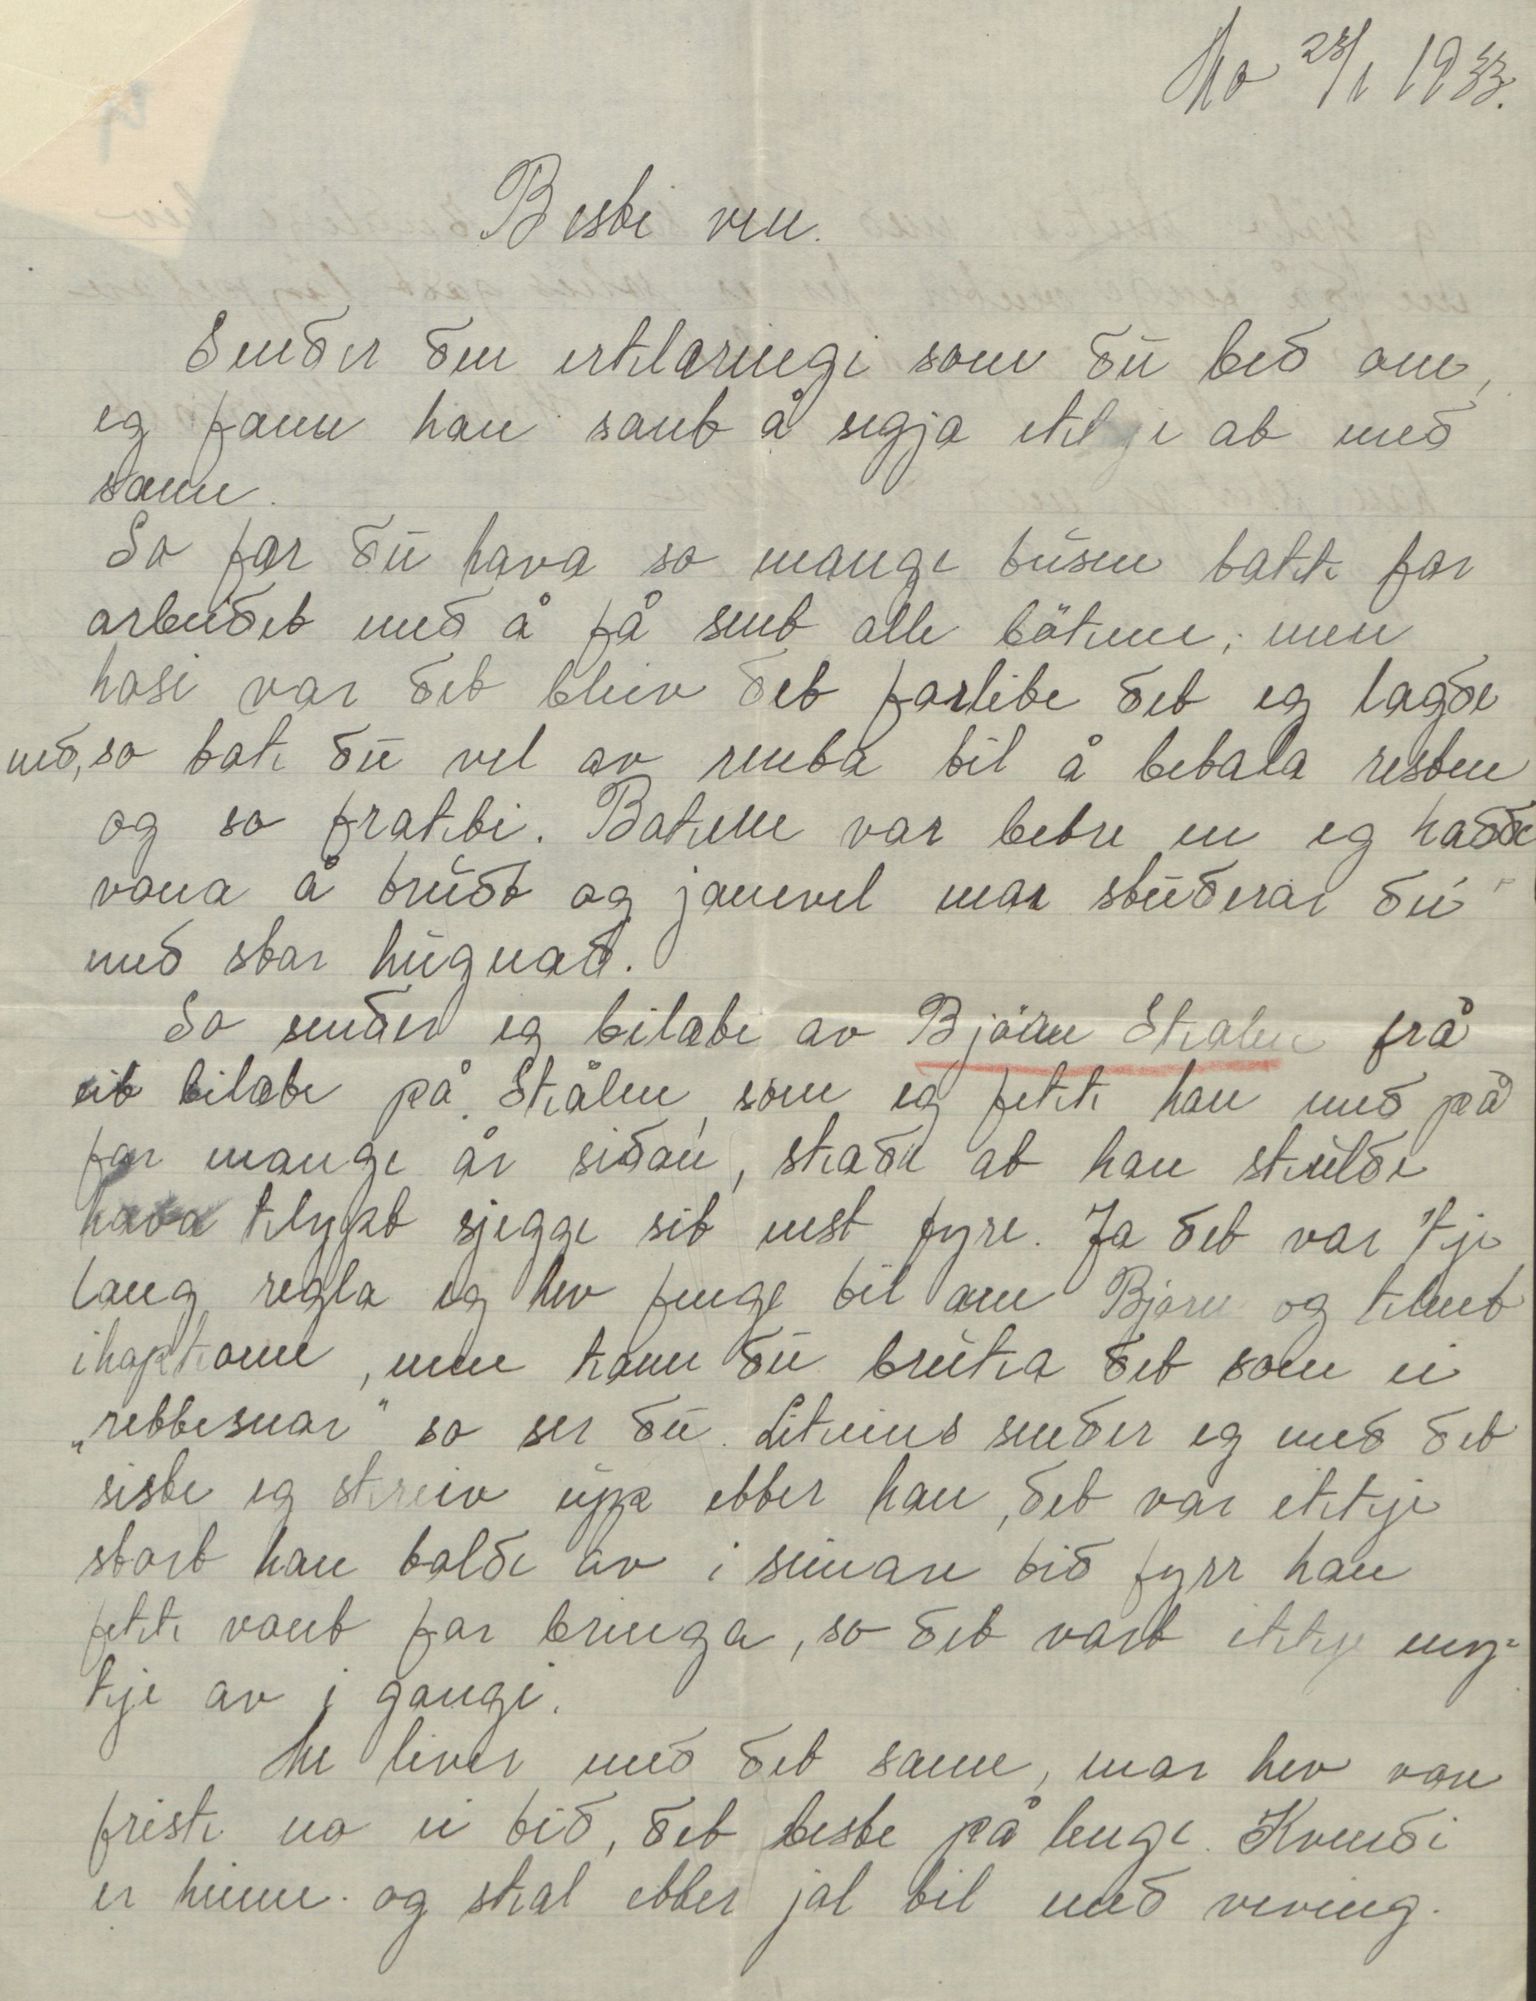 Mo 28/1 1933.
Beste ven.
Sender den erklæringi som du bed om,
eg fann han sant å segja ikkje at med
same.
So får du hava so mange tusen takk for
arbeidet med å få sent alle bökene; men
hosi var det bleiv det forlite det eg lagde
ned, so tak du vel av renta til å betala resten
og so frakti. Bökene var betre en eg hadde
vona å trudt og jamvel mor studerar du
med stor hugnad.
So sender eg bilæte av Björn Skålen frå
eit bilæte på Skålen, som eg fekk han med på
for mange år sidan, skade at han skulde
hava klypt sjegge sit nest fyre. Ja det var kje
lang regla eg hev fenge til om Björn og klent
ihopkome, men kann du bruka det som ei
"rettesnor" so ser du. Likeins sender eg med det
siste eg skreiv upp etter han, det var ikkje
stort han tolde av i seinare tid fyrr han
fekk vont for bringa, so det vart ikkje my-
kje av i gongi.
Me liver med det same, mor hev vore
frisk no ei tid, det beste på lenge. Kvendi
er heime og skal etter jol til med veving.